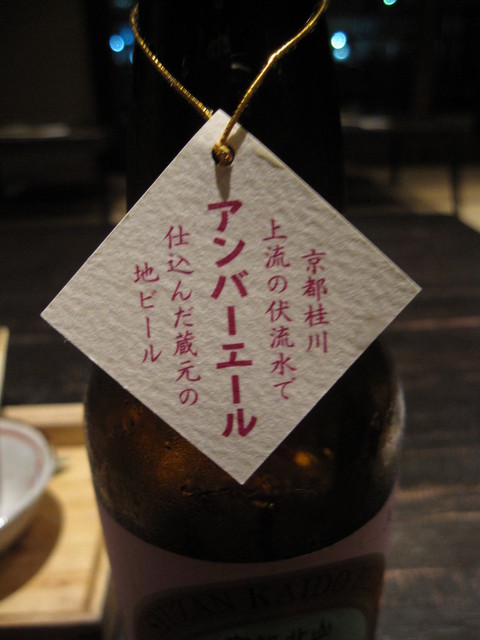 京都桂川
上流の伏流水で
アンバーエール
仕込んだ蔵元の
地ビール
TAN KAIDO